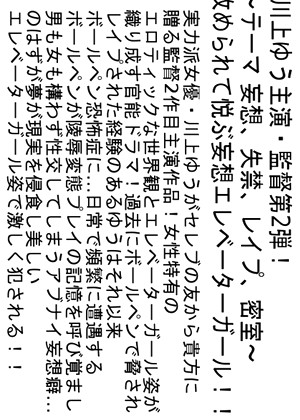 川上ゆう主演・監督第2弾！
～テーマ 妄想、失禁、レイプ、密室～
攻められて悦ぶ妄想エレベーターガール！！
実力派女優・川上ゆうがセレブの友から貴方に
贈る監督2作目主演作品！女性特有の
エロティックな世界観とエレベーターガール姿が
織り成す官能ドラマ！過去にボールペンで脅され
レイプされた経験のあるゆうはそれ以来
ボールペン恐怖症に…日常で頻繁に遭遇する
ボールペンが陵辱変態プレイの記憶を呼び覚まし
男も女も構わず性交してしまうアブナイ妄想癖…
のはずが夢が現実を侵食し美しい
エレベーターガール姿で激しく犯される！！